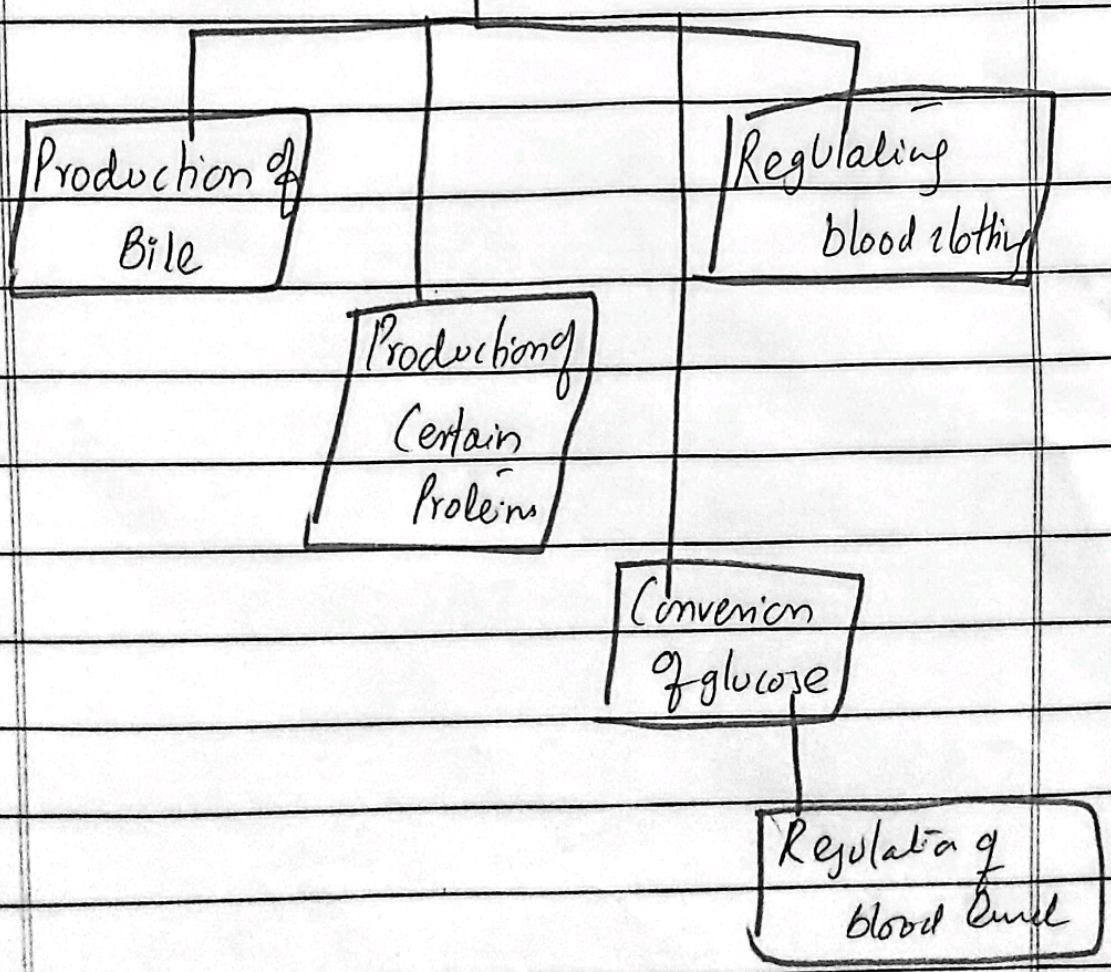 Production of
Bile
Regulating
blood clothing
Production of
Certain
Proteins
Conversion
of glucose
Regulation of
blood